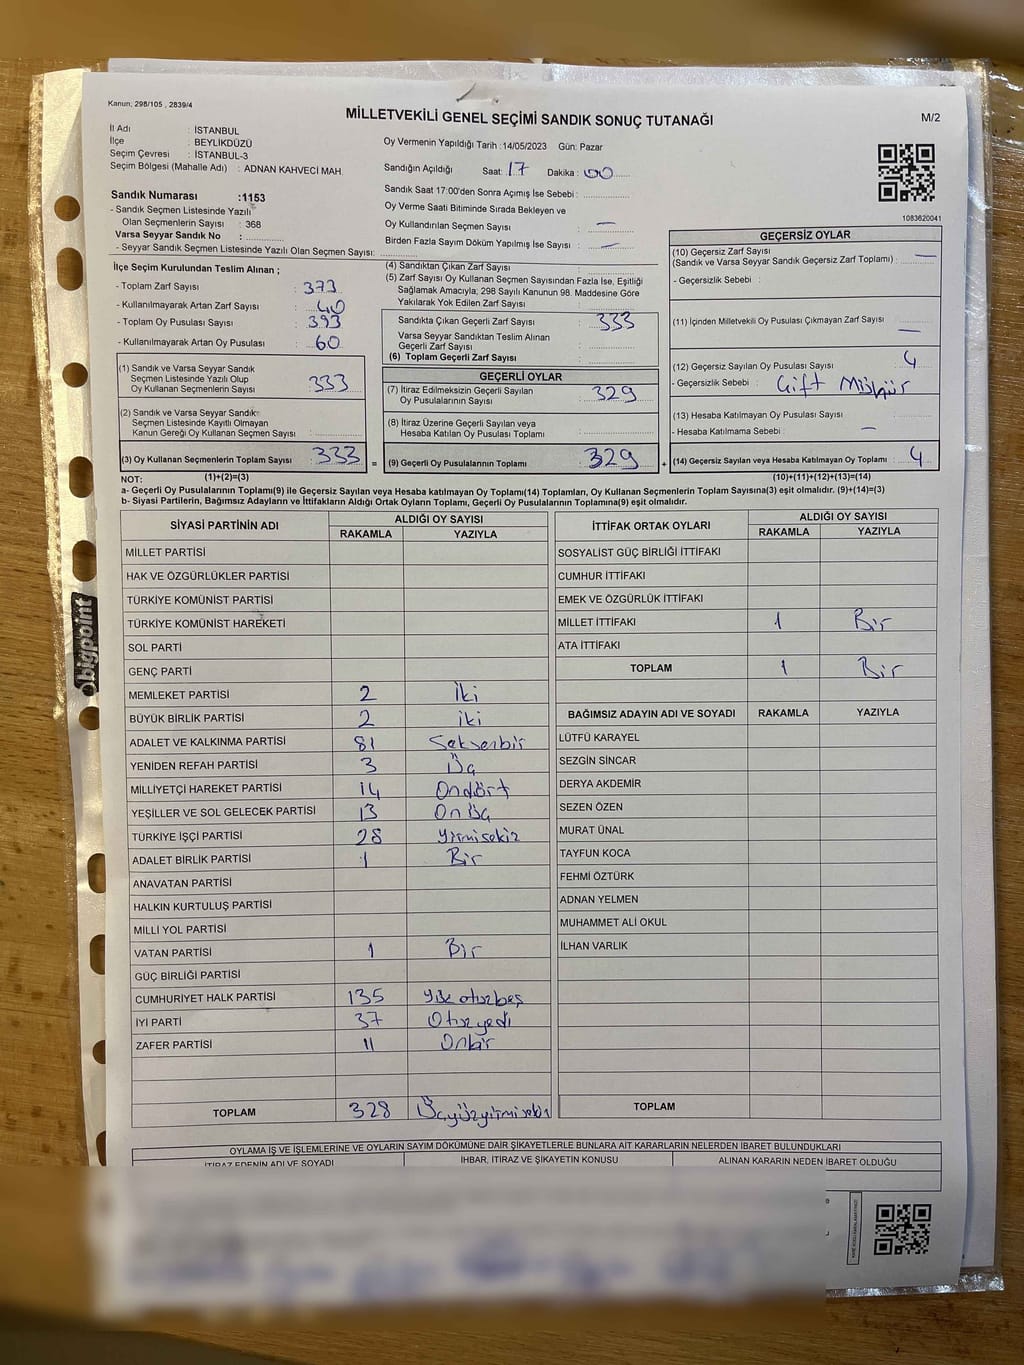 Kanun; 298/105 , 2839/4
MİLLETVEKİLİ GENEL SEÇİMİ SANDIK SONUÇ TUTANAĞI
M/2
İl Adı : İSTANBUL
İlçe : BEYLİKDÜZÜ
Seçim Çevresi : İSTANBUL-3
Seçim Bölgesi (Mahalle Adı) : ADNAN KAHVECİ MAH.
Oy Vermenin Yapıldığı Tarih :14/05/2023 Gün: Pazar
Sandığın Açıldığı Saat: 17 Dakika: 00
Sandık Saat 17:00'den Sonra Açımış İse Sebebi :
Oy Verme Saati Bitiminde Sırada Bekleyen ve
Oy Kullandırılan Seçmen Sayısı : —
Birden Fazla Sayım Döküm Yapılmış İse Sayısı : —
1083620041
Sandık Numarası :1153
- Sandık Seçmen Listesinde Yazılı
Olan Seçmenlerin Sayısı : 368
Varsa Seyyar Sandık No :
- Seyyar Sandık Seçmen Listesinde Yazılı Olan Seçmen Sayısı:
İlçe Seçim Kurulundan Teslim Alınan ;
- Toplam Zarf Sayısı : 373
- Kullanılmayarak Artan Zarf Sayısı : 40
- Toplam Oy Pusulası Sayısı : 393
- Kullanılmayarak Artan Oy Pusulası : 60
(1) Sandık ve Varsa Seyyar Sandık
Seçmen Listesinde Yazılı Olup
Oy Kullanan Seçmenlerin Sayısı : 333
(2) Sandık ve Varsa Seyyar Sandık
Seçmen Listesinde Kayıtlı Olmayan
Kanun Gereği Oy Kullanan Seçmen Sayısı :
(3) Oy Kullanan Seçmenlerin Toplam Sayısı : 333 =
(4) Sandıktan Çıkan Zarf Sayısı :
(5) Zarf Sayısı Oy Kullanan Seçmen Sayısından Fazla İse, Eşitliği
Sağlamak Amacıyla; 298 Sayılı Kanunun 98. Maddesine Göre
Yakılarak Yok Edilen Zarf Sayısı :
Sandıkta Çıkan Geçerli Zarf Sayısı : 333
Varsa Seyyar Sandıktan Teslim Alınan
Geçerli Zarf Sayısı :
(6) Toplam Geçerli Zarf Sayısı :
GEÇERLİ OYLAR
(7) İtiraz Edilmeksizin Geçerli Sayılan
Oy Pusulalarının Sayısı : 329
(8) İtiraz Üzerine Geçerli Sayılan veya
Hesaba Katılan Oy Pusulası Toplamı :
(9) Geçerli Oy Pusulalarının Toplamı : 329 +
GEÇERSİZ OYLAR
(10) Geçersiz Zarf Sayısı
(Sandık ve Varsa Seyyar Sandık Geçersiz Zarf Toplamı) : —
- Geçersizlik Sebebi :
(11) İçinden Milletvekili Oy Pusulası Çıkmayan Zarf Sayısı : —
(12) Geçersiz Sayılan Oy Pusulası Sayısı : 4
- Geçersizlik Sebebi : Çift Mühür
(13) Hesaba Katılmayan Oy Pusulası Sayısı :
- Hesaba Katılmama Sebebi : —
(14) Geçersiz Sayılan veya Hesaba Katılmayan Oy Toplamı : 4
NOT: (1)+(2)=(3) (10)+(11)+(12)+(13)=(14)
a- Geçerli Oy Pusulalarının Toplamı(9) ile Geçersiz Sayılan veya Hesaba katılmayan Oy Toplamı(14) Toplamları, Oy Kullanan Seçmenlerin Toplam Sayısına(3) eşit olmalıdır. (9)+(14)=(3)
b- Siyasi Partilerin, Bağımsız Adayların ve İttifakların Aldığı Ortak Oyların Toplamı, Geçerli Oy Pusulalarının Toplamına(9) eşit olmalıdır.
SİYASİ PARTİNİN ADI ALDIĞI OY SAYISI
RAKAMLA YAZIYLA
MİLLET PARTİSİ
HAK VE ÖZGÜRLÜKLER PARTİSİ
TÜRKİYE KOMÜNİST PARTİSİ
TÜRKİYE KOMÜNİST HAREKETİ
SOL PARTİ
GENÇ PARTİ
MEMLEKET PARTİSİ 2 İki
BÜYÜK BİRLİK PARTİSİ 2 iki
ADALET VE KALKINMA PARTİSİ 81 Seksenbir
YENİDEN REFAH PARTİSİ 3 Üç
MİLLİYETÇİ HAREKET PARTİSİ 14 Ondört
YEŞİLLER VE SOL GELECEK PARTİSİ 13 Onüç
TÜRKİYE İŞÇİ PARTİSİ 28 yirmisekiz
ADALET BİRLİK PARTİSİ 1 Bir
ANAVATAN PARTİSİ
HALKIN KURTULUŞ PARTİSİ
MİLLİ YOL PARTİSİ
VATAN PARTİSİ 1 Bir
GÜÇ BİRLİĞİ PARTİSİ
CUMHURİYET HALK PARTİSİ 135 Yüz otuzbeş
İYİ PARTİ 37 Otuzyedi
ZAFER PARTİSİ 11 Onbir
TOPLAM 328 Üçyüzyirmisekiz
İTTİFAK ORTAK OYLARI ALDIĞI OY SAYISI
RAKAMLA YAZIYLA
SOSYALİST GÜÇ BİRLİĞİ İTTİFAKI
CUMHUR İTTİFAKI
EMEK VE ÖZGÜRLÜK İTTİFAKI
MİLLET İTTİFAKI 1 Bir
ATA İTTİFAKI
TOPLAM 1 Bir
BAĞIMSIZ ADAYIN ADI VE SOYADI RAKAMLA YAZIYLA
LÜTFÜ KARAYEL
SEZGİN SİNCAR
DERYA AKDEMİR
SEZEN ÖZEN
MURAT ÜNAL
TAYFUN KOCA
FEHMİ ÖZTÜRK
ADNAN YELMEN
MUHAMMET ALİ OKUL
İLHAN VARLIK
TOPLAM
OYLAMA İŞ VE İŞLEMLERİNE VE OYLARIN SAYIM DÖKÜMÜNE DAİR ŞİKAYETLERLE BUNLARA AİT KARARLARIN NELERDEN İBARET BULUNDUKLARI
İTİRAZ EDENİN ADI VE SOYADI İHBAR, İTİRAZ VE ŞİKAYETİN KONUSU ALINAN KARARIN NEDEN İBARET OLDUĞU
bigpoint